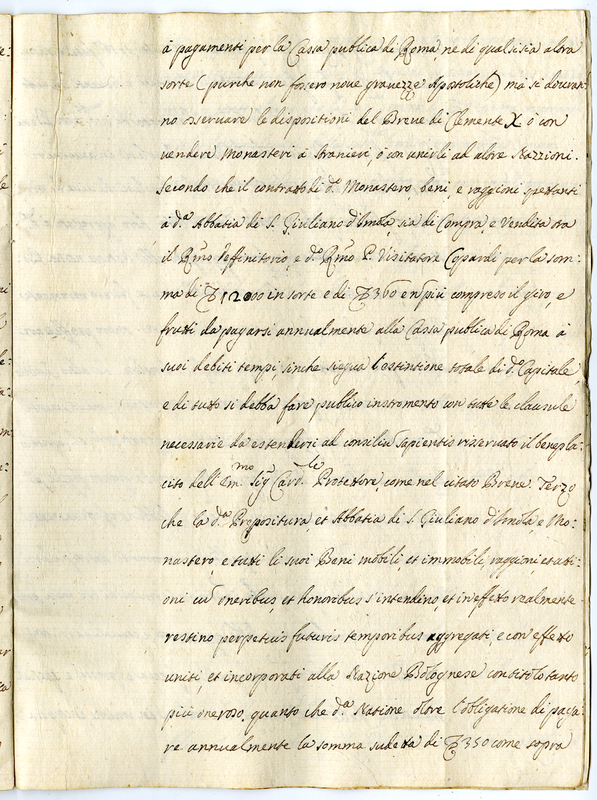 à pagamenti per la Cassa publica di Roma, ne di qualsisia altra
sorte (purche non fossero noue grauezze Apostoliche) mà si douran:
no osseruare le dispositioni del Breue di Clemente X ò con
uendere Monasteri à stranieri, ò con unirli ad altre Nazzioni.
Secondo che il contratto di d.º Monastero, beni, e raggioni spettanti
à d.ª Abbatia di S. Giuliano d'Imola, sia di Compra, e Vendita tra
il R̃mo Deffinitorio, e d.º R̃mo P. Visitatore Copardi per la som:
ma di 12000 in sorte e di 360 e non più compreso il giro, e
frutti da pagarsi annualmente alla Cassa publica di Roma à
suoi debiti tempi, sinche siegua l'estintione totale di d.º Capitale,
e di tutto si debba fare publico instromento con tutte le clausule
necessarie da estendersi ad consiliũ sapientis risseruato il benepla:
cito dell'Em.mo Sig.r Card.le Protettore, come nel citato Breue. Terzo
che la d.ª Prepositura, et Abbatia di S. Giuliano d'Imola, e Mo:
nastero, e tutti li suoi Beni mobili, et immobili, raggioni et atti:
oni cũ oneribus, et honoribus s'intendino, et in effetto realmente
restino perpetuis futuris temporibus aggregati, e con effetto
uniti, et incorporati alla Nazione Bolognese con titolo tanto
più oneroso, quanto che d.ª Natione oltre l'obligatione di paga:
re annualmente la somma sudetta di 350 come sopra